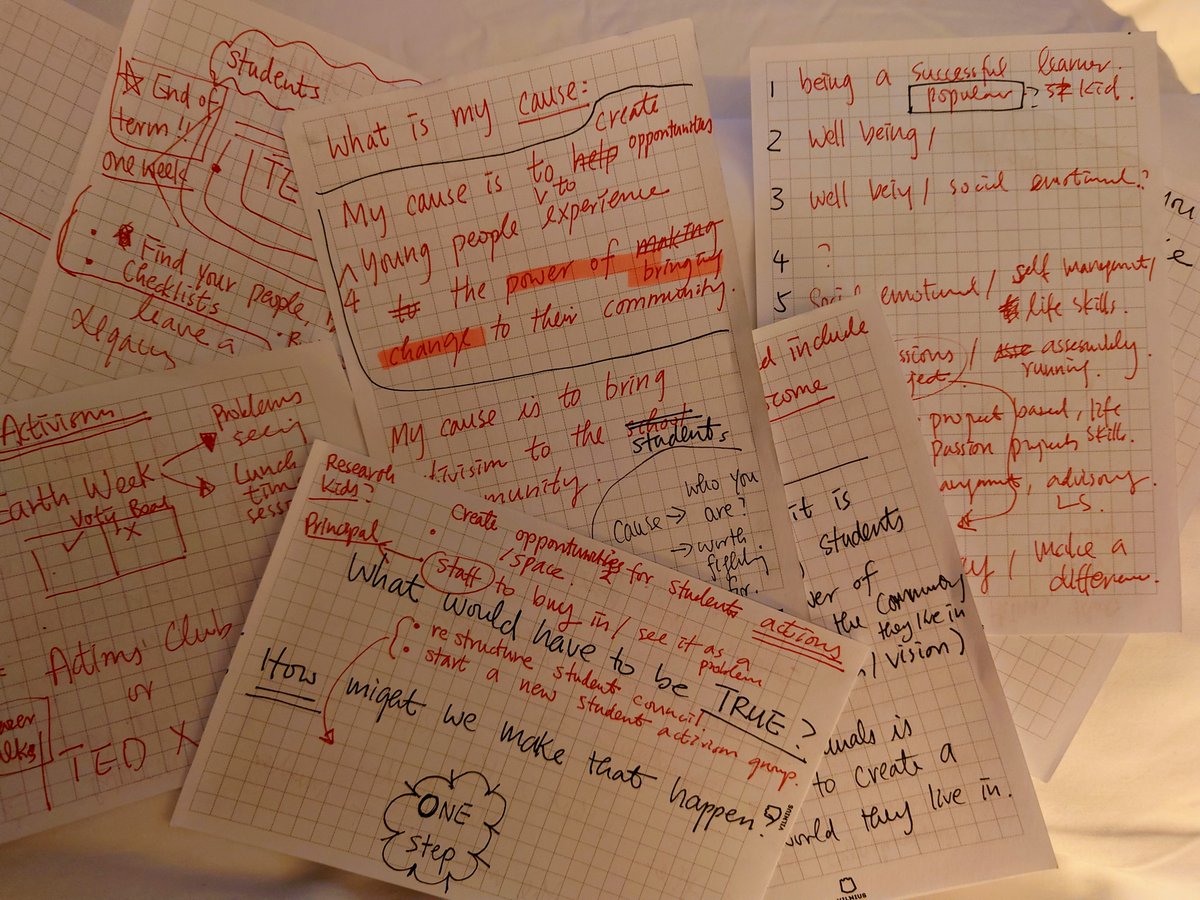 students
☆ End of
term !!
one week
TE
• Find your people,
• Checklists
leave a
Legacy
What is my cause:
create
My cause is to help opportunities
to
young people experience
4 to the power of making
bringing
change to their community.
My cause is to bring
to the school
students
munity.
who you
Cause → are?
→ worth
fighting
for.
1 being a successful learner.
popular ? st kid.
2 Well being /
3 Well being / social emotional?
4 ?
5 Social emotional / self management /
life skills.
ssions / assembly
ject running.
project based, life
passion projects skills.
advisory
LS.
/ make a
difference.
Activism
Problems
seeing
Earth Week
Lunch
time
sessi
Voting Board
✓ X
Club
or
TED X
Research
Kids?
Principal
• Create opportunities for students actions
/ space.
staff to buy in / see it as a
problem
What would have to be TRUE?
• restructure student council
• start a new student activism group.
How might we make that happen?
ONE
step
VILNIUS
d include
come
it is
students
wer of
the community
they live in
/ vision)
uals is
to create a
world they live in.
VILNIUS